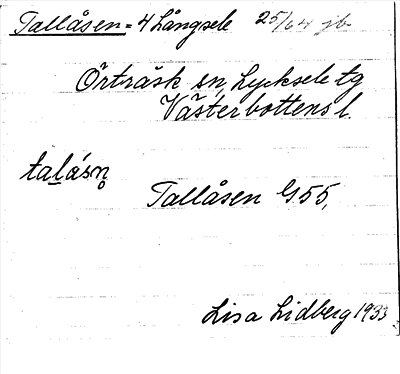 Tallåsen = 4 Långsele 25/64 jb.
Örträsk sn, Lycksele tg
Västerbottens l.
talåsn̥
Tallåsen G55,
Lisa Lidberg 1933